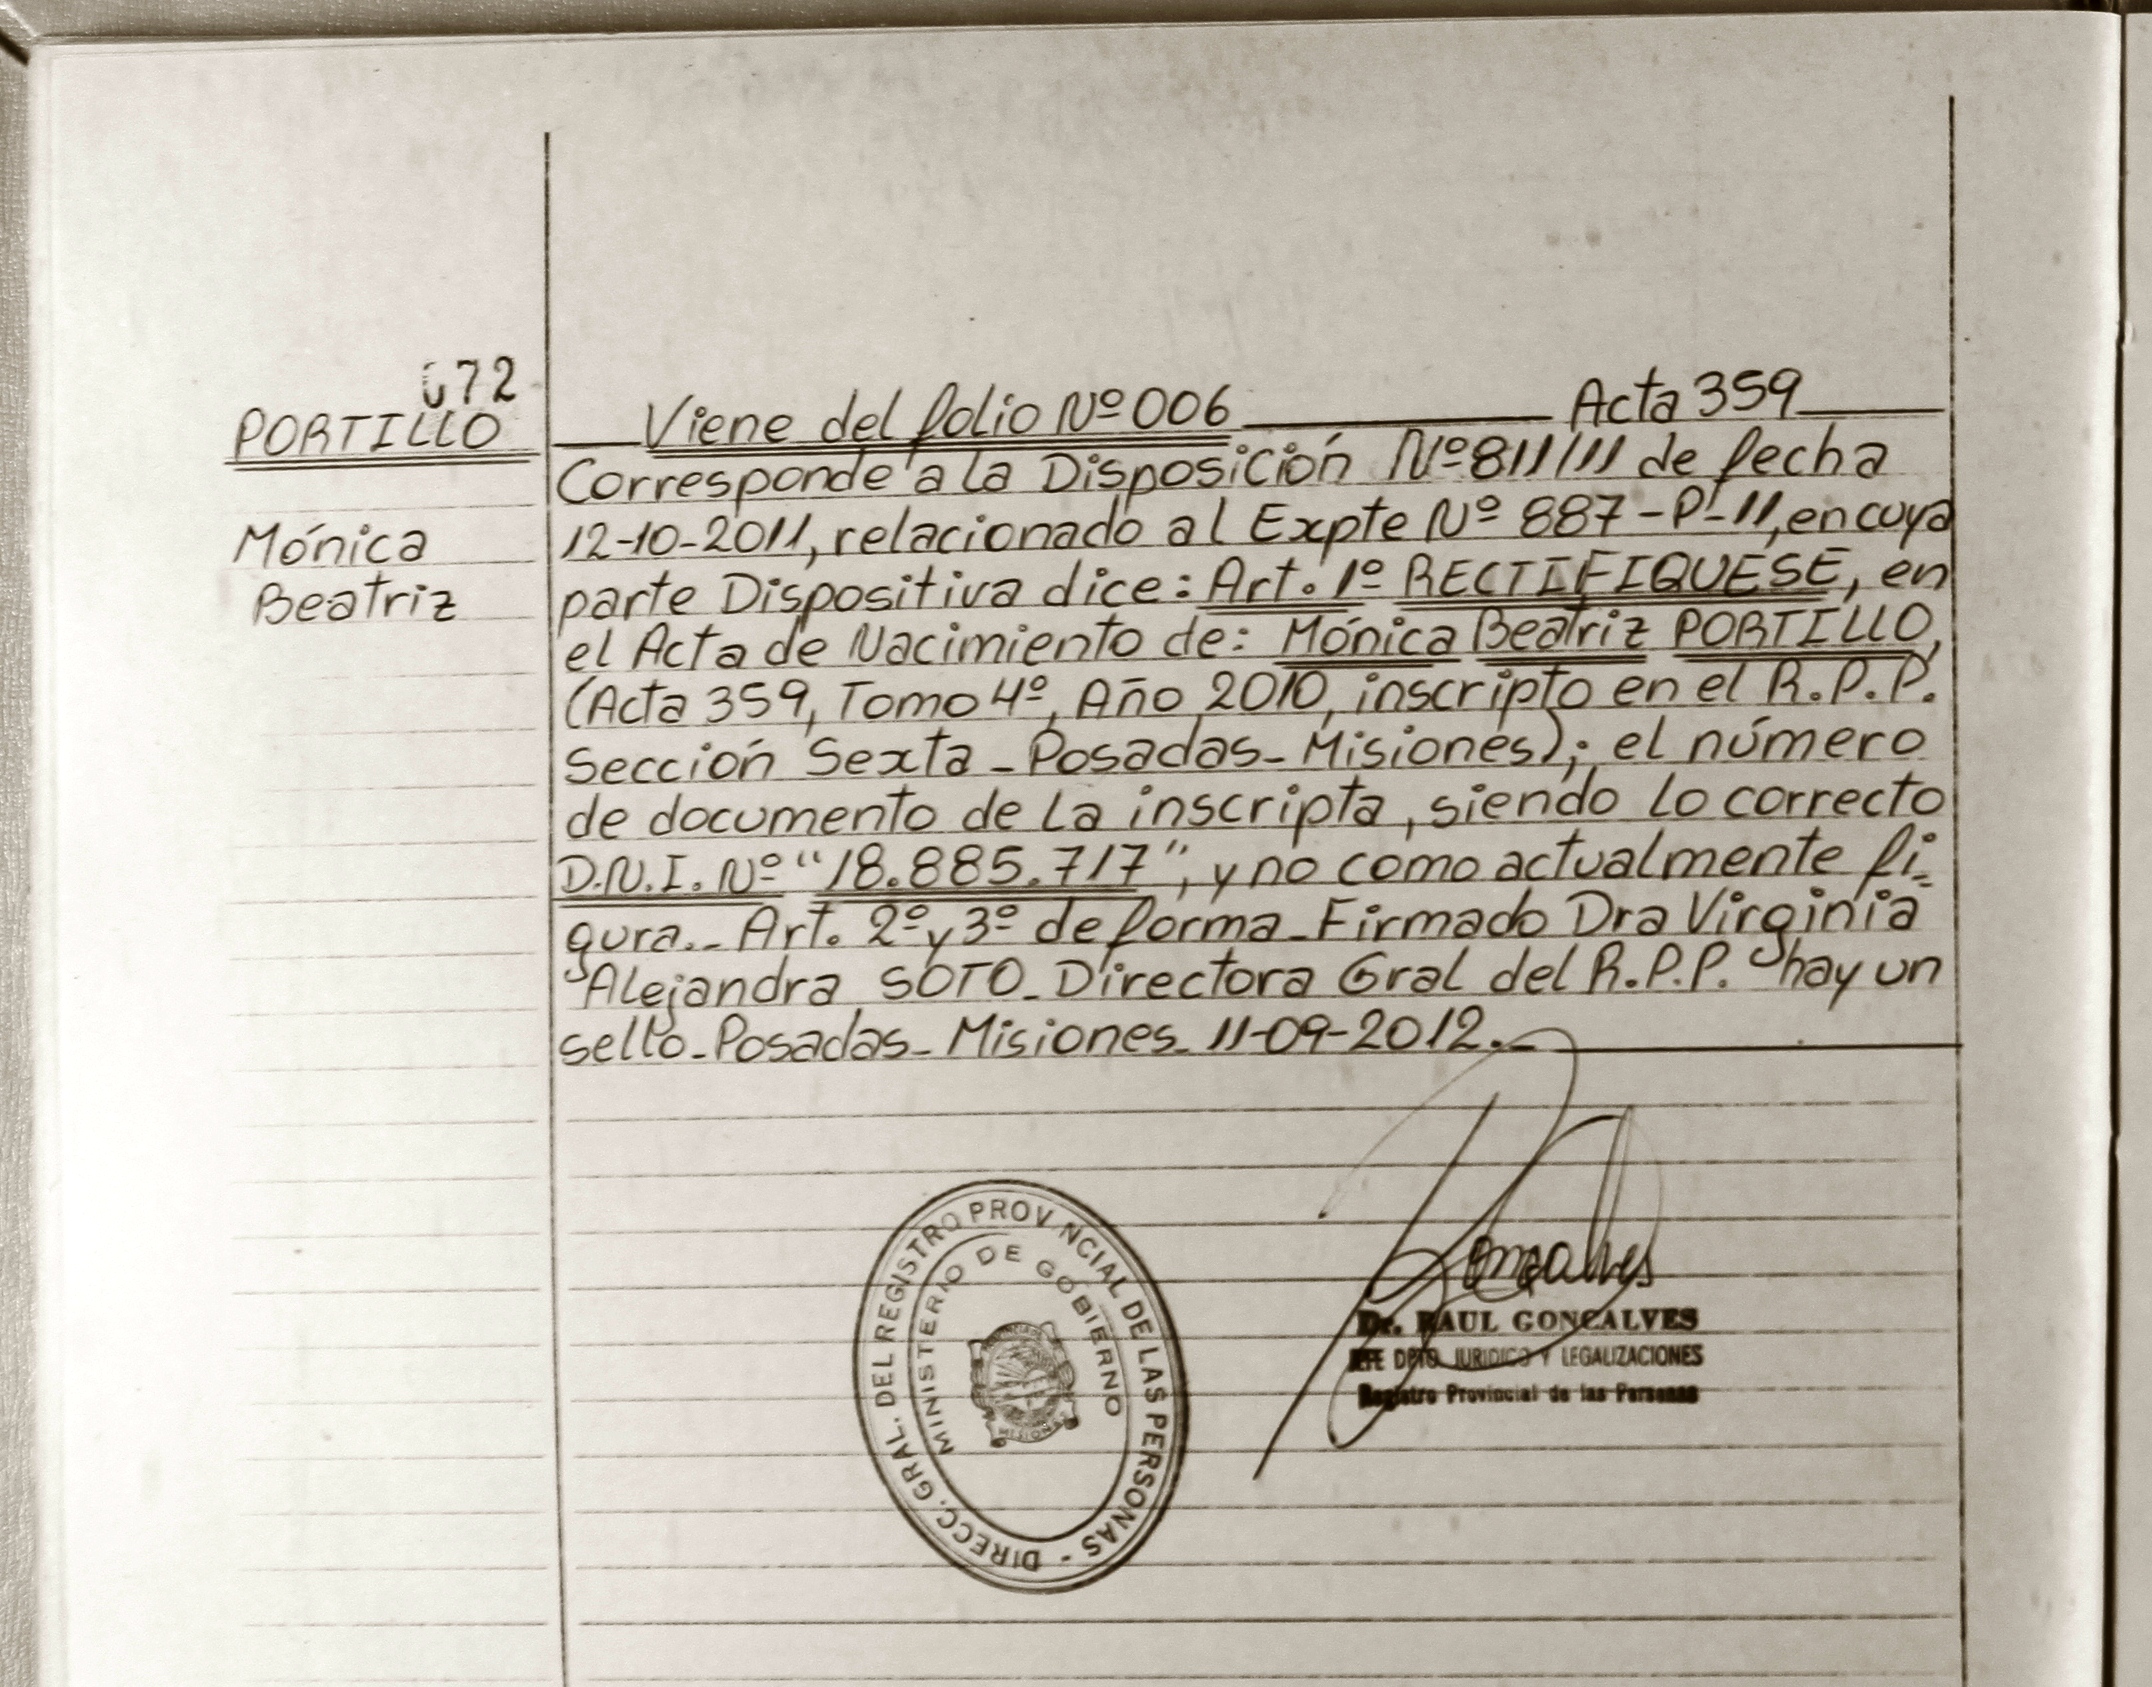 072
PORTILLO
Mónica
Beatriz
Viene del folio Nº 006 Acta 359
Corresponde a la Disposición Nº 811/11 de fecha
12-10-2011, relacionado al Expte Nº 887-P-11, en cuya
parte Dispositiva dice: Art. 1º RECTIFIQUESE, en
el Acta de Nacimiento de: Mónica Beatriz PORTILLO,
(Acta 359, Tomo 4º, Año 2010, inscripto en el R.P.P.
Sección Sexta - Posadas - Misiones); el número
de documento de la inscripta, siendo lo correcto
D.N.I. Nº "18.885.717", y no como actualmente fi-
gura.- Art. 2º y 3º de forma - Firmado Dra Virginia
Alejandra SOTO - Directora Gral del R.P.P. hay un
sello - Posadas - Misiones - 11-09-2012.-
DIRECC. GRAL. DEL REGISTRO PROVINCIAL DE LAS PERSONAS -
MINISTERIO DE GOBIERNO
MISIONES
Goncalves
Dr. RAUL GONCALVES
JEFE DPTO JURIDICO Y LEGALIZACIONES
Registro Provincial de las Personas